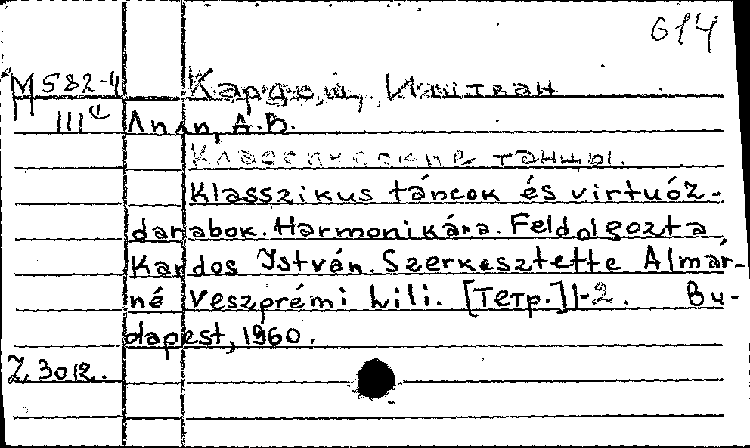 614
М 582-4 Кардош, Иштван
III
А.В.
Классические танцы.
Klasszikus táncok és virtuóz-
darabok. Harmonikára. Feldolgozta
Kardos István. Szerkesztette Almár-
né Veszprémi Lili. [Тетр.] 1-2. Bu-
dapest, 1960.
Z. 3012.